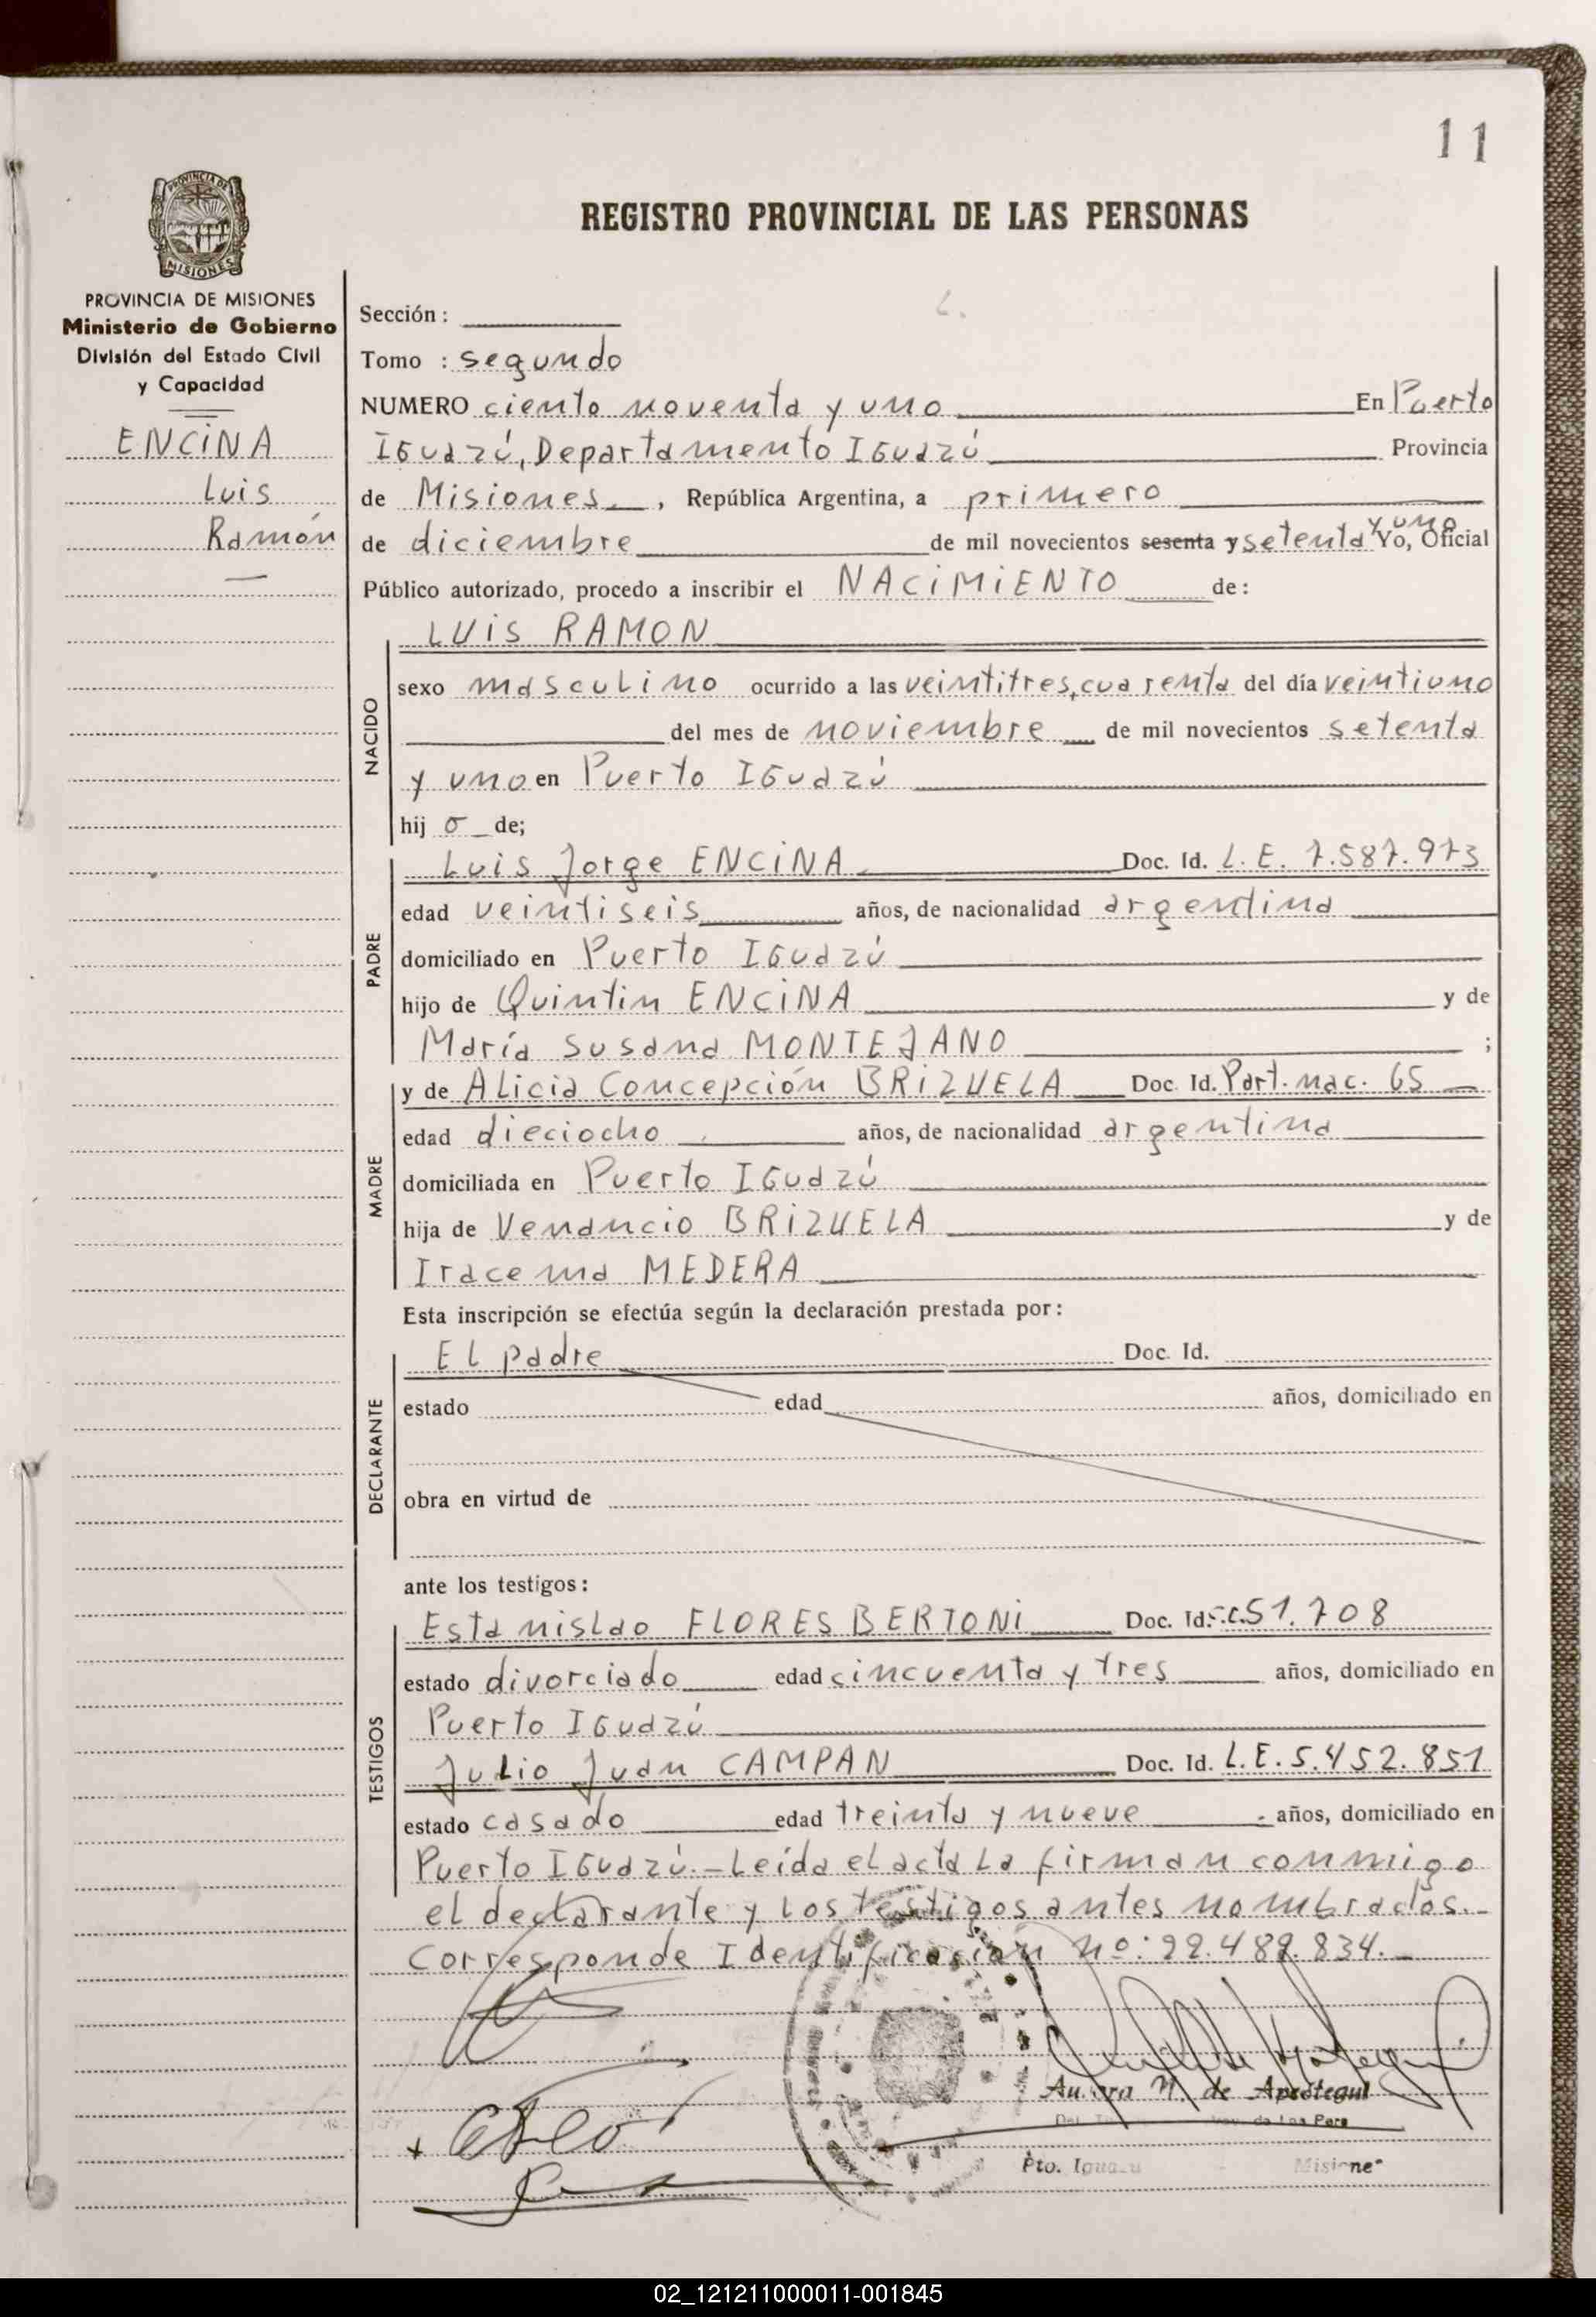 11
REGISTRO PROVINCIAL DE LAS PERSONAS
PROVINCIA DE MISIONES
MISIONES
PROVINCIA DE MISIONES
Ministerio de Gobierno
División del Estado Civil
y Capacidad
ENCINA
Luis
Ramón
Sección:
Tomo : segundo
NUMERO ciento noventa y uno En Puerto
Iguazú, Departamento Iguazú Provincia
de Misiones, República Argentina, a primero
de diciembre de mil novecientos sesenta y setenta y uno Yo, Oficial
Público autorizado, procedo a inscribir el NACIMIENTO de:
NACIDO
LUIS RAMON
sexo masculino ocurrido a las veintitres, cuarenta del día veintiuno
del mes de noviembre de mil novecientos setenta
y uno en Puerto Iguazú
hij o de;
PADRE
Luis Jorge ENCINA Doc. Id. L.E. 7.587.973
edad veintiseis años, de nacionalidad argentina
domiciliado en Puerto Iguazú
hijo de Quintin ENCINA y de
María Susana MONTEJANO ;
MADRE
y de Alicia Concepción BRIZUELA Doc. Id. Part. nac. 65
edad dieciocho años, de nacionalidad argentina
domiciliada en Puerto Iguazú
hija de Venancio BRIZUELA y de
Iracema MEDERA
Esta inscripción se efectúa según la declaración prestada por:
DECLARANTE
El padre Doc. Id.
estado edad años, domiciliado en
obra en virtud de
ante los testigos:
TESTIGOS
Estanislao FLORES BERTONI Doc. Id. 51.708
estado divorciado edad cincuenta y tres años, domiciliado en
Puerto Iguazú
Julio Juan CAMPAN Doc. Id. L.E. 5.452.851
estado casado edad treinta y nueve años, domiciliado en
Puerto Iguazú.- Leída el acta la firman conmigo
el declarante y los testigos antes nombrados.-
Corresponde Identificación nº: 22.482.834.-
de Apostegui
Pto. Iguazu Misiones
02_121211000011-001845